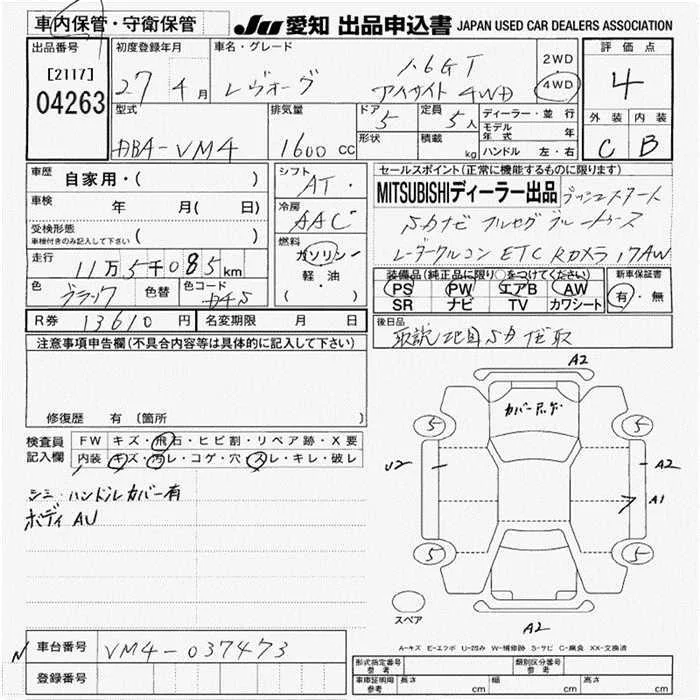 車内保管・守衛保管 JU 愛知 出品申込書 JAPAN USED CAR DEALERS ASSOCIATION
出品番号 初度登録年月 車名・グレード 評価点
[2117] 27年4月 レヴォーグ 1.6GT 2WD 4
04263 アイサイト 4WD 4WD
型式 排気量 ドア 定員 ディーラー・並行 外装 内装
DBA-VM4 1600cc 5 5人 モデル年式 年 C B
形状 積載 kg ハンドル 左・右
車歴 自家用・( ) シフト セールスポイント(正常に機能するものに限ります)
車検 年 月( 日) AT MITSUBISHIディーラー出品 プッシュスタート
受検形態 ( ) 冷房 AAC 汐ナビ フルセグ ブルートゥース
車検付きのみ記入して下さい
走行 燃料 ガソリン レーダークルコン ETC Rカメラ 17AW
11万5千085km 軽・油
色 ブラック 色替 色コード ( ) 装備品(純正品に限り○をつけてください) 新車保証書
PS PW エアB AW 有・無
SR ナビ TV カワシート
R券 13610円 名変期限 月 日 後日品
注意事項申告欄(不具合内容等は具体的に記入して下さい) 取説
修復歴 有 〔箇所 〕
A2
カバー
検査員 FW キズ・飛石・ヒビ割・リペア跡・X要 5 5
記入欄 内装 キズ・汚レ・コゲ・穴・スレ・キレ・破レ U2 A2
シミ・ハンドルカバー有 A1
ボディ AU 5 5
スペア A2
A-キズ E-エクボ U-凹み W-補修跡 S-サビ C-腐食 XX-交換済
N 車台番号 VM4-037473
登録番号 形式指定番号 参考 類別区分番号 参考
車庫証明用 参考 長さ cm 幅 cm 高さ cm